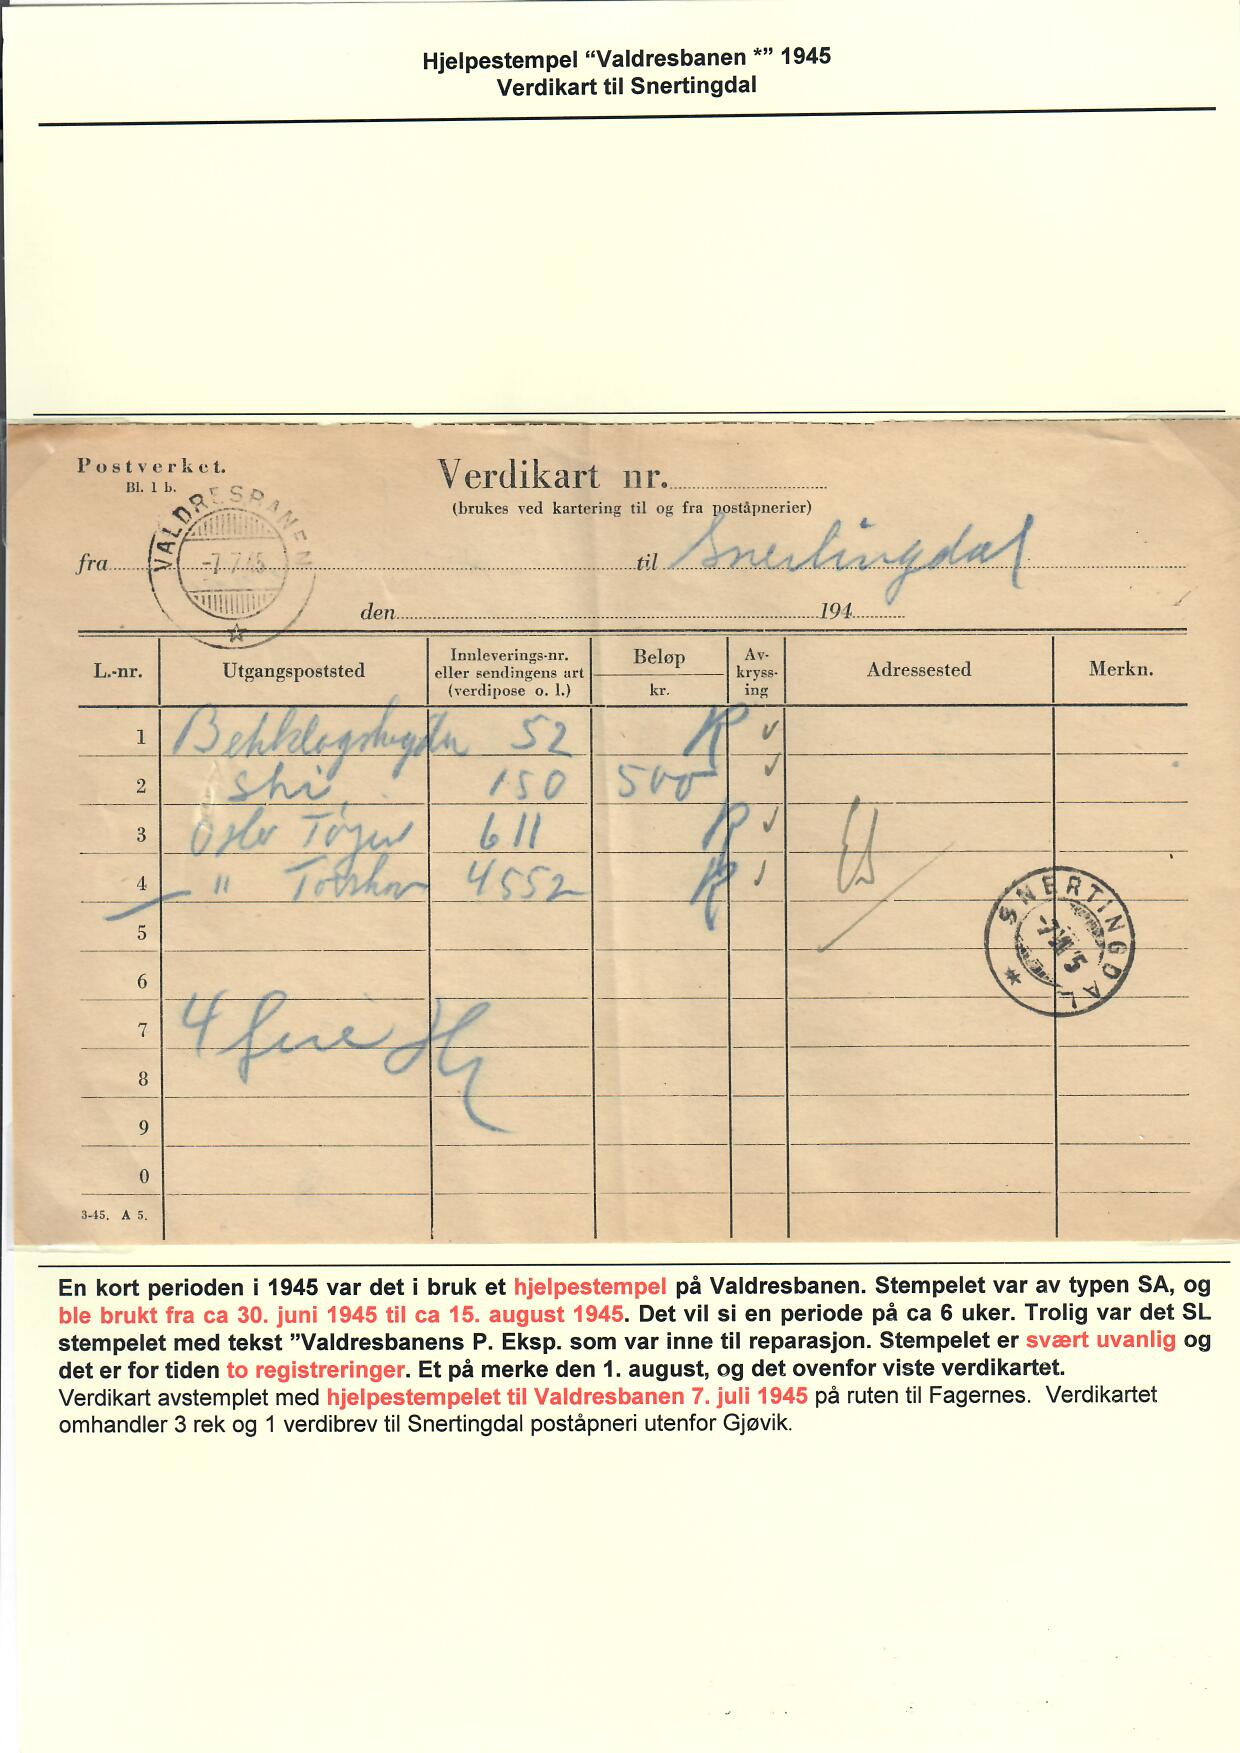 Hjelpestempel “Valdresbanen *” 1945
Verdikart til Snertingdal
Postverket.
Bl. 1 b.
Verdikart nr.
(brukes ved kartering til og fra poståpnerier)
VALDRESBANEN
-7.7.45
fra
til Snertingdal
den
194
L.-nr.
Utgangspoststed
Innleverings-nr.
eller sendingens art
(verdipose o. l.)
Beløp
kr.
Av-
kryss-
ing
Adressested
Merkn.
1 52 R
2 Ski 150 500
3 Oslo Tøyen 611 R
4 " Torshov 4552 R
5
6
7 4 fire
8
9
0
SNERTINGDAL
3-45. A 5.
En kort perioden i 1945 var det i bruk et hjelpestempel på Valdresbanen. Stempelet var av typen SA, og
ble brukt fra ca 30. juni 1945 til ca 15. august 1945. Det vil si en periode på ca 6 uker. Trolig var det SL
stempelet med tekst ”Valdresbanens P. Eksp. som var inne til reparasjon. Stempelet er svært uvanlig og
det er for tiden to registreringer. Et på merke den 1. august, og det ovenfor viste verdikartet.
Verdikart avstemplet med hjelpestempelet til Valdresbanen 7. juli 1945 på ruten til Fagernes. Verdikartet
omhandler 3 rek og 1 verdibrev til Snertingdal poståpneri utenfor Gjøvik.